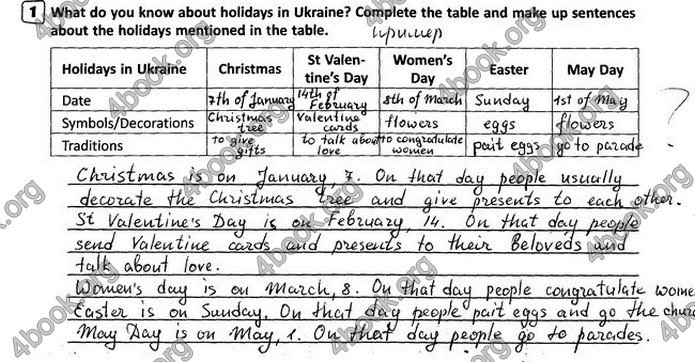 1 What do you know about holidays in Ukraine? Complete the table and make up sentences
about the holidays mentioned in the table. пример
Holidays in Ukraine Christmas St Valentine's Day Women's Day Easter May Day
Date 7th of January 14th of February 8th of March Sunday 1st of May ?
Symbols/Decorations Christmas tree Valentine cards flowers eggs flowers
Traditions to give gifts to talk about love to congratulate women pait eggs go to parade
Christmas is on January, 7. On that day people usually
decorate the Christmas tree and give presents to each other.
St Valentine's Day is on February, 14. On that day people
send Valentine cards and presents to their Beloveds and
talk about love.
Women's day is on March, 8. On that day people congratulate wome
Easter is on Sunday. On that day people pait eggs and go the chur
May Day is on May, 1. On that day people go to parades.
4book.org